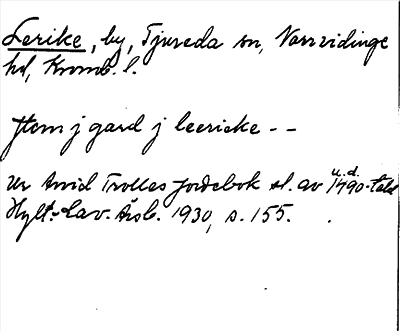 Lerike, by, Tjureda sn, Norrvidinge
hd, Kronob. l.
Jtem j gard j leericke - -
Ur Arvid Trolles jordebok sl. av 1490-talet u.d.
Hylt.-Cav. Årsb. 1930, s. 155.